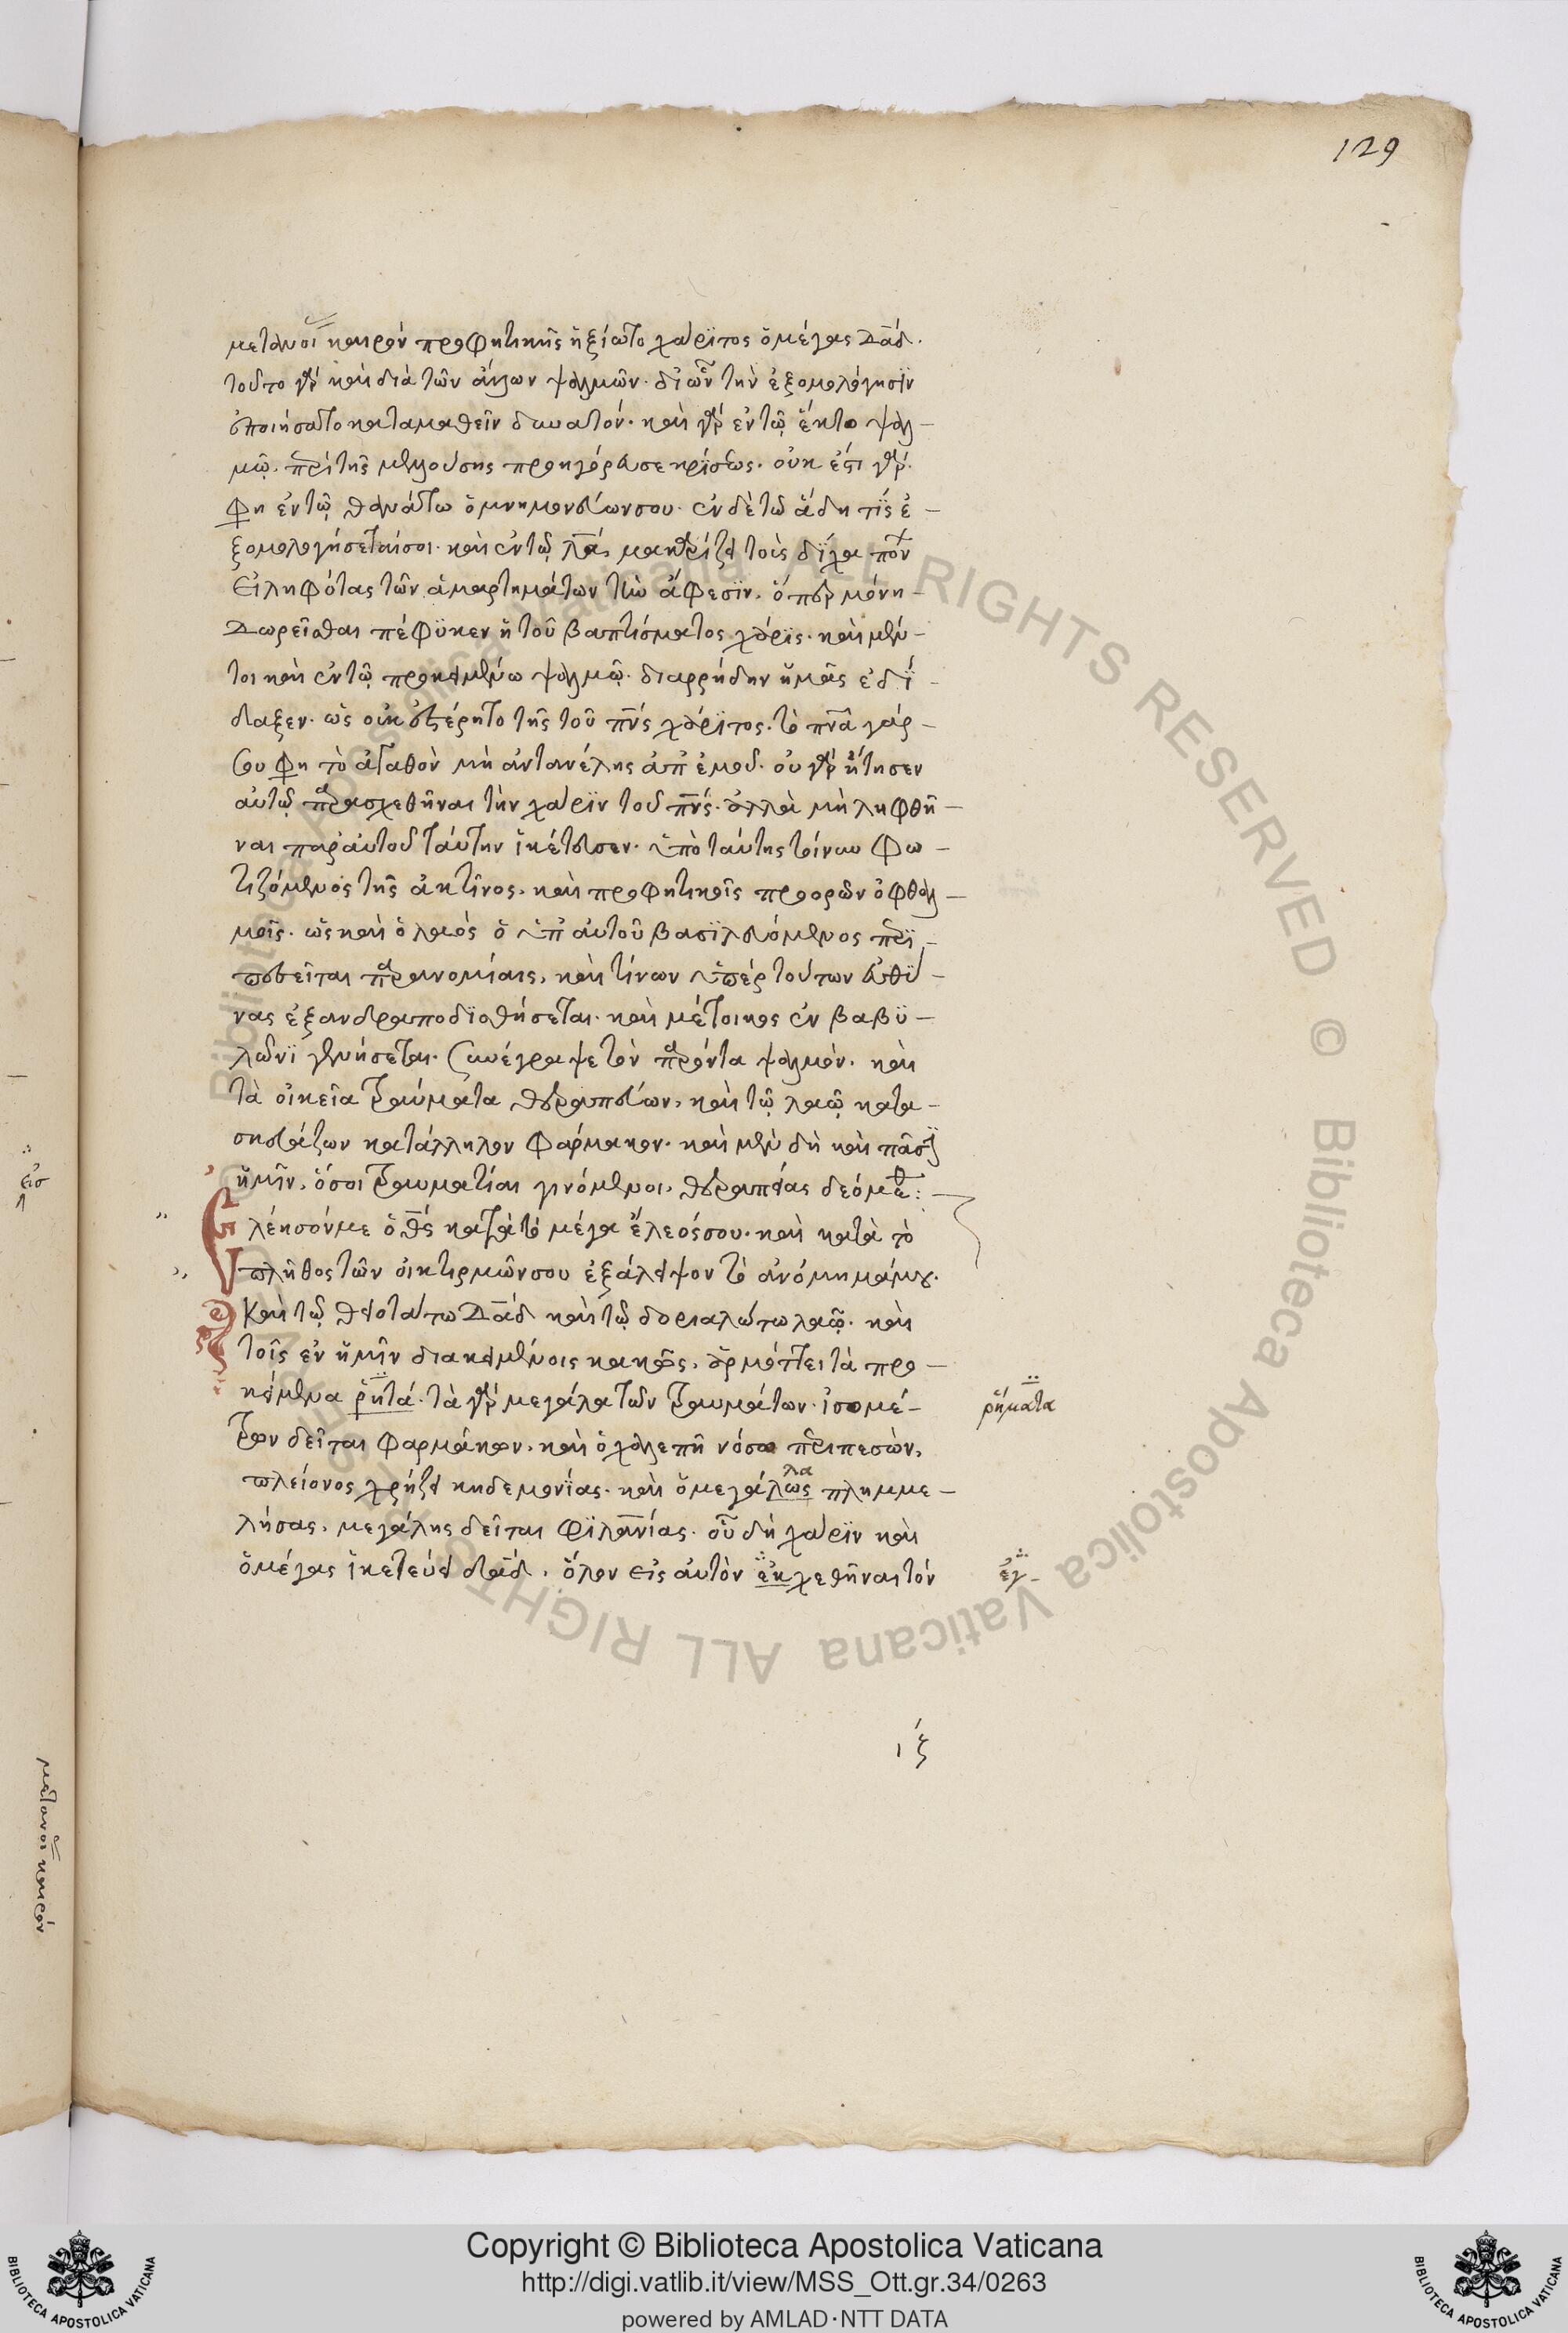 129
μετανοί καιρὸν προφητικῆς ἠξίωτο χάριτος ὁ μέγας δαδ.
τοῦτο γὰρ καὶ διὰ τῶν ἄλλων ψαλμῶν. δι ὧν τὴν ἐξομολόγησϊν
ἐποιήσατο καταμαθεῖν δυνατόν. καὶ γὰρ ἐν τῷ ἕκτω ψαλ-
μῷ. περὶ τῆς μελλούσης προηγόρευσε κρίσεως. οὐκ ἔστι γὰρ.
φη ἐν τῷ θανάτω ὁ μνημονεύων σου. ἐν δὲ τῶ ἅδη τίς ἐ-
ξομολογήσεταί σοι. καὶ ἐν τῷ λα, μακαρίζει τοὺς δίχα πόν
εἰληφότας τῶν ἁμαρτημάτων τὴν ἄφεσϊν. ὅπερ μόνη-
δωρεῖσθαι πέφϋκεν ἡ τοῦ βαπτίσματος χάρϊς. καὶ μέν-
τοι καὶ ἐν τῷ προκειμένω ψαλμῷ. διαρρήδην ἡμᾶς ἐδί-
δαξεν. ὡς οὐκ ἐστέρητο τῆς τοῦ πνς χάρϊτος. τὸ πνα γάρ-
σου φη τὸ ἀγαθὸν μὴ ἀντανέλης ἀπ ἐμοῦ. οὐ γὰρ ἤτησεν
αὐτῷ παρασχεθῆναι τὴν χάρϊν τοῦ πνς. ἀλλὰ μὴ ληφθῆ-
ναι παρ αὐτοῦ ταύτην ἱκέτευσεν. ὑπὸ ταύτης τοίνυν φω-
τιζόμενος τῆς ἀκτῖνος. καὶ προφητικοῖς προορῶν ὀφθαλ-
μοῖς. ὡς καὶ ὁ λαὸς ὁ ὑπ αὐτοῦ βασϊλευόμενος περϊ-
πεσεῖται παρανομίαις, καὶ τίνων ὑπὲρ τούτων εὐθύ-
νας ἐξανδραποδϊσθήσεται. καὶ μέτοικος ἐν βαβϋ-
λῶνϊ γενήσεται. συνέγραψε τὸν παρόντα ψαλμὸν. καὶ
τὰ οἰκεῖα τραύματα θεραπεύων, καὶ τῷ λαῷ κατα-
σκευάζων κατάλληλον φάρμακον. καὶ μὲν δὴ καὶ πᾶσϊ
ἡμῖν, ὅσοι τραυματίαι γινόμενοι, θεραπείας δεόμεθ:-
Ἐλέησόν με ὁ θς κατὰ τὸ μέγα ἔλεός σου. καὶ κατὰ τὸ
πλῆθος τῶν οἰκτιρμῶν σου ἐξάλειψον τὸ ἀνόμημά μου.
Καὶ τῷ θειοτάτω δαδ καὶ τῷ δοριαλώτω λαῷ. καὶ
τοῖς ἐν ἡμῖν διακειμένοις κακῶς, ἁρμόττει τὰ προ-
κείμενα ῥητά. τὰ γὰρ μεγάλα τῶν τραυμάτων. ἰσομέ-
τρων δεῖται φαρμάκων. καὶ ὁ χαλεπῆ νόσω περιπεσὼν,
πλείονος χρήζει κηδεμονίας. καὶ ὁ μεγάλως πλημμε-
λήσας, μεγάλης δεῖται φϊλανίας. οὗ δὴ χάρϊν καὶ
ὁ μέγας ἱκετεύει δαδ, ὅλον εἰς αὐτὸν ἐκχεθῆναι τὸν
ῥήματα
λα
ἐγ-
ιζ
εἰσ
μετανοί καιρόν
Copyright © Biblioteca Apostolica Vaticana
http://digi.vatlib.it/view/MSS_Ott.gr.34/0263
powered by AMLAD·NTT DATA
BIBLIOTECA APOSTOLICA VATICANA
BIBLIOTECA APOSTOLICA VATICANA